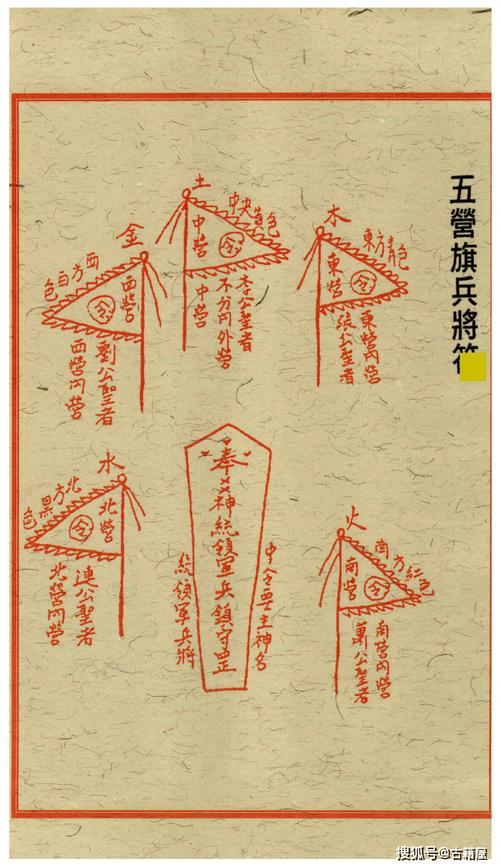 五營旗兵將符
土
中央黃色
中營
令
李公聖者
不分內外營
中營
木
東方青色
東營
令
東營內營
張公聖者
金
西方白色
西營
令
劉公聖者
西營內營
水
北方黑色
北營
令
連公聖者
北營內營
火
南方紅色
南營
令
南營內營
蕭公聖者
奉
神統領軍兵鎮守
中令要主神名
統領軍兵將
搜狐号@古籍屋